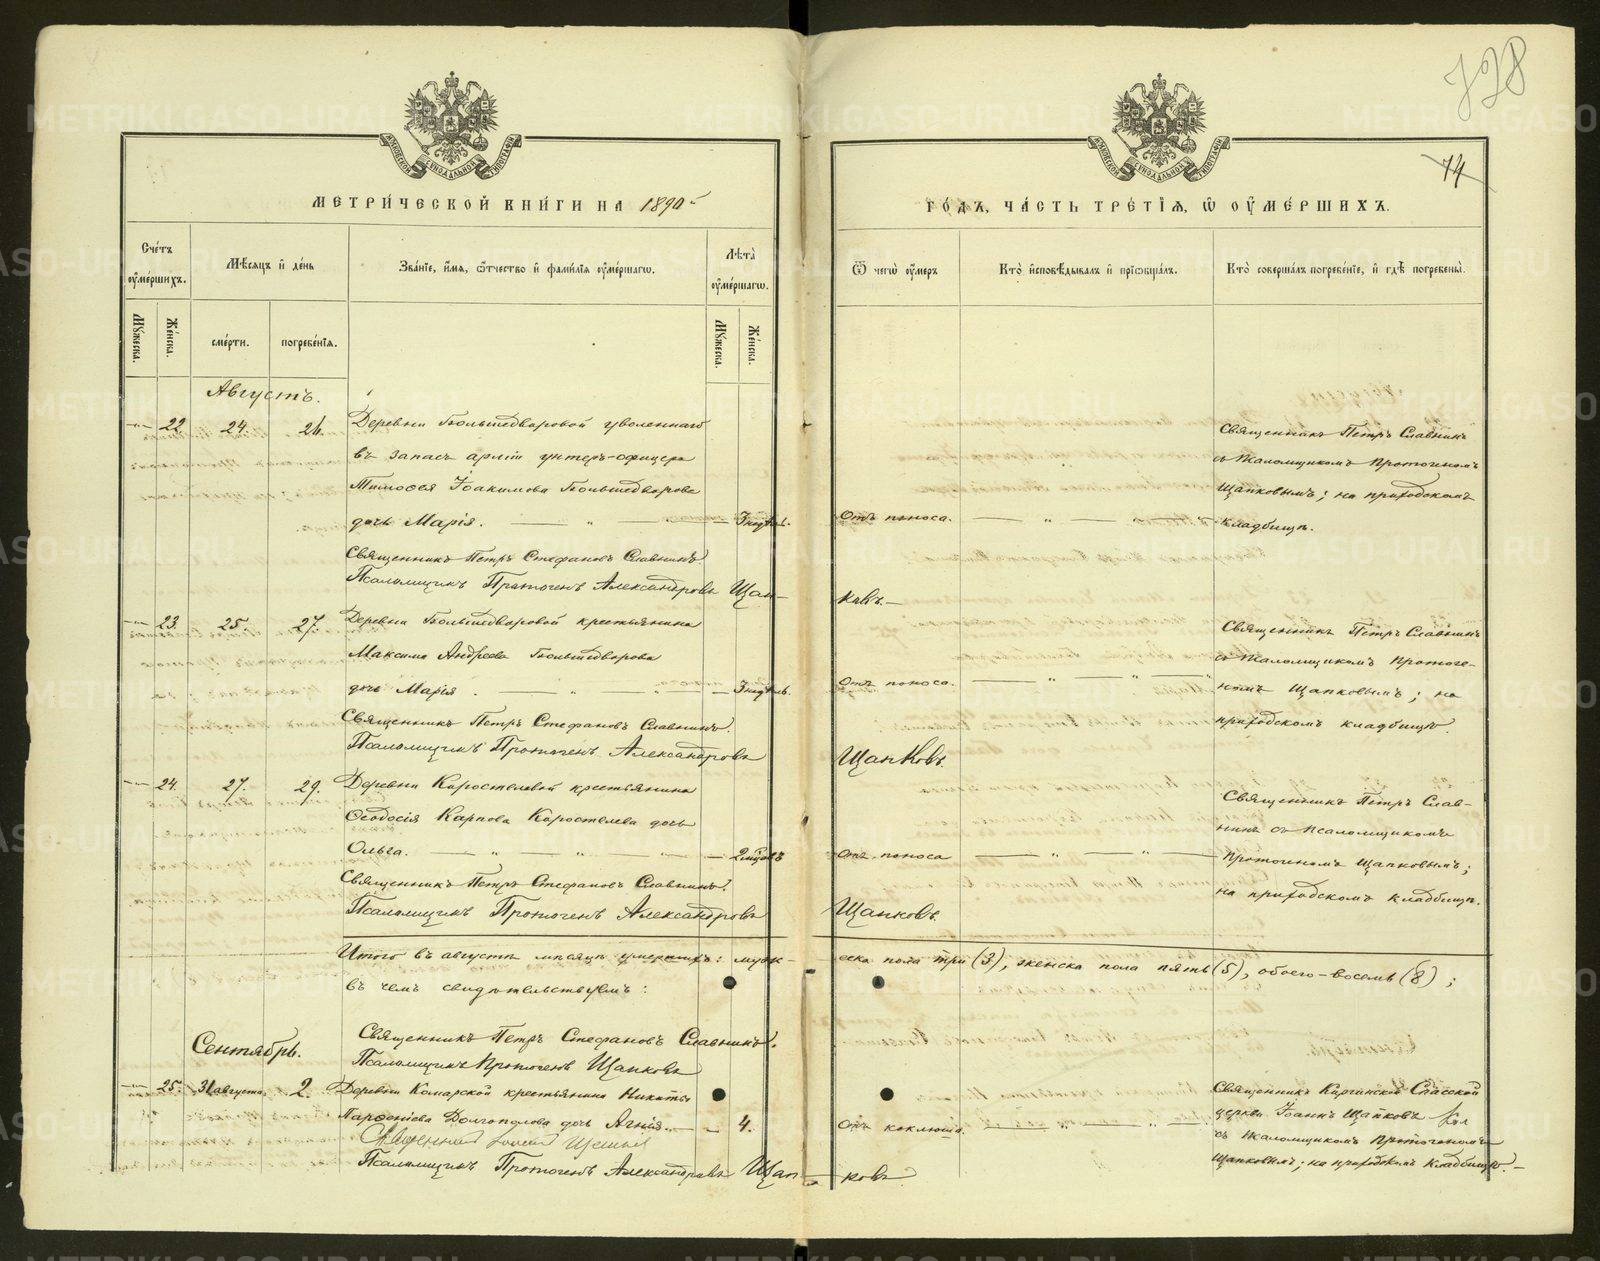 728
74
МЕТРИ́ЧЕСКОЙ КНИ́ГИ НА 1890
ГО́ДЪ, ЧА́СТЬ ТРЕ́ТІЯ, Ѿ ОУМЕ́РШИХЪ.
Сче́тъ оумершихъ.
Мѣсяцъ и день
Званіе, имя, отчество и фамилія оумершаго.
Лѣта оумершаго.
Ѿ чего оумеръ
Кто исповѣдывалъ и пріобщалъ.
Кто совершалъ погребеніе, и гдѣ погребены.
Мужеска.
Женска.
смерти.
погребенія.
Мужеска.
Женска.
Августъ.
22. 24. 26.
Деревни Большедворовой уволеннаго
въ запасъ арміи унтеръ-офицера
Тимоѳея Іоакимова Большедворова
дочь Марія. 3 недѣль.
Отъ поноса.
Священникъ Петръ Славнинъ
съ псаломщикомъ Протогеномъ
Щапковымъ; на приходскомъ
кладбищѣ.
Священникъ Петръ Стефановъ Славнинъ
Псаломщикъ Протогенъ Александровъ Щап-
ковъ.
23. 25. 27.
Деревни Большедворовой крестьянина
Максима Андреева Большедворова
дочь Марія. 3 недѣль.
Отъ поноса.
Священникъ Петръ Славнинъ
съ псаломщикомъ Протоге-
номъ Щапковымъ; на
приходскомъ кладбищѣ.
Священникъ Петръ Стефановъ Славнинъ.
Псаломщикъ Протогенъ Александровъ
Щапковъ.
24. 27. 29.
Деревни Коростелевой крестьянина
Ѳеодосія Карпова Коростелева дочь
Ольга. 2 мѣсяцъ
Отъ поноса
Священникъ Петръ Слав-
нинъ съ псаломщикомъ
Протогеномъ Щапковымъ;
на приходскомъ кладбищѣ.
Священникъ Петръ Стефановъ Славнинъ.
Псаломщикъ Протогенъ Александровъ
Щапковъ.
Итого въ августѣ мѣсяцѣ умершихъ: муж-
еска пола три (3), женска пола пять (5), обоего-восемь (8);
въ чемъ свидѣтельствуемъ:
Священникъ Петръ Стефановъ Славнинъ.
Псаломщикъ Протогенъ Щапковъ
Сентябрь.
25. 31 августа. 2.
Деревни Комарской крестьянина Никиты
Парѳеніева Долгополова дочь Агнія. 4.
Отъ коклюша.
Священникъ Киргинской Спасской
церкви Іоаннъ Щапковъ
съ псаломщикомъ Протогеномъ
Щапковымъ; на приходскомъ кладбищѣ.
Священникъ Іоаннъ
Псаломщикъ Протогенъ Александровъ Щап-
ковъ.
METRIKI.GASO-URAL.RU